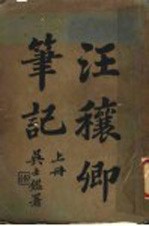 汪穰卿
筆記
上冊
吳士鑑署